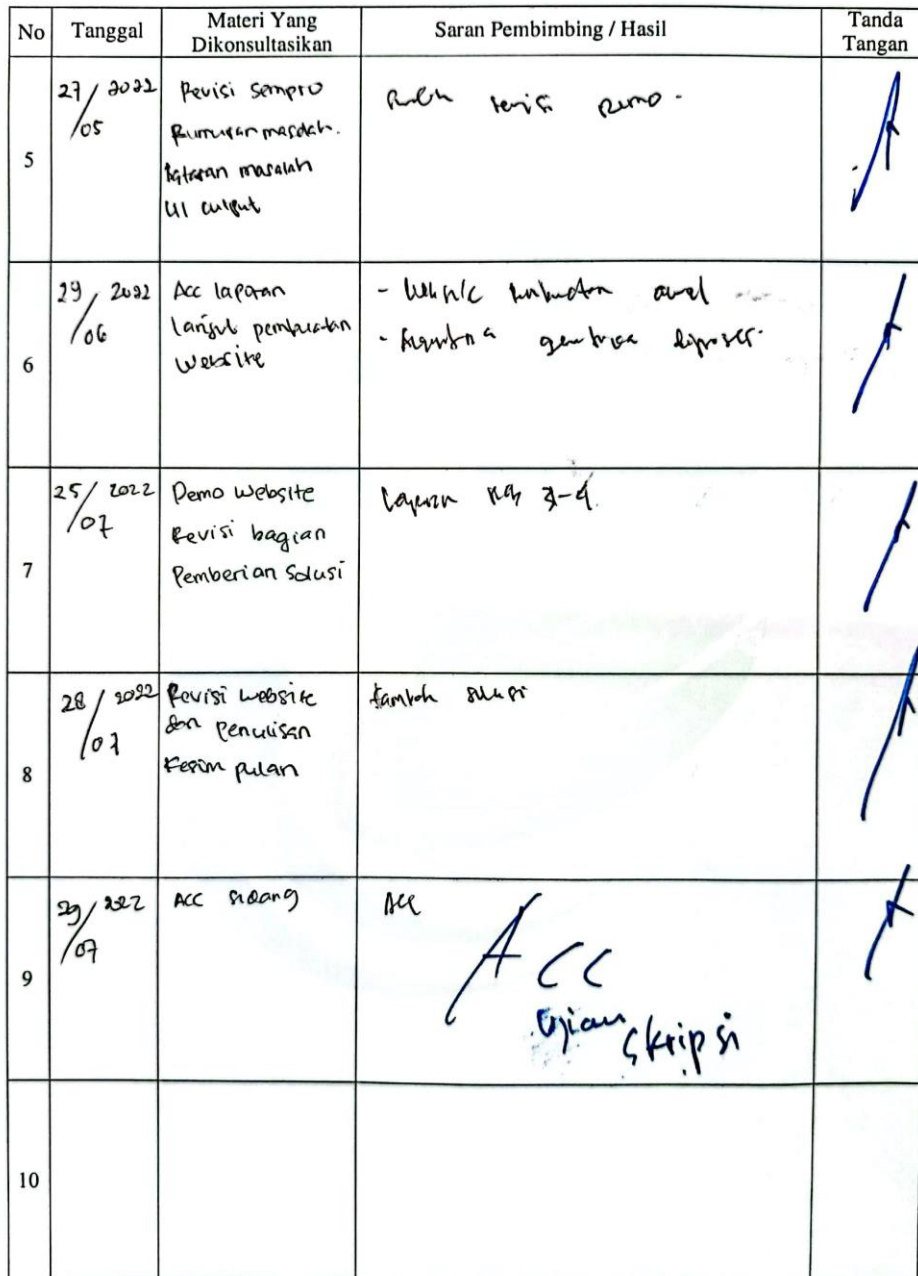 No Tanggal Materi Yang Dikonsultasikan Saran Pembimbing / Hasil Tanda Tangan
5
27/05 2022
Revisi Sempro
Rumusan masalah.
Batasan masalah
UI output
revisi
6
29/06 2022
Acc laporan
lanjut pembuatan
Website
-
awal
-
7
25/07 2022
Demo Website
Revisi bagian
Pemberian Solusi
Laporan 3-4
8
28/07 2022
Revisi website
dan Penulisan
Kesimpulan
tambah solusi
9
29/07 2022
ACC Sidang
Acc
ACC
Ujian Skripsi
10